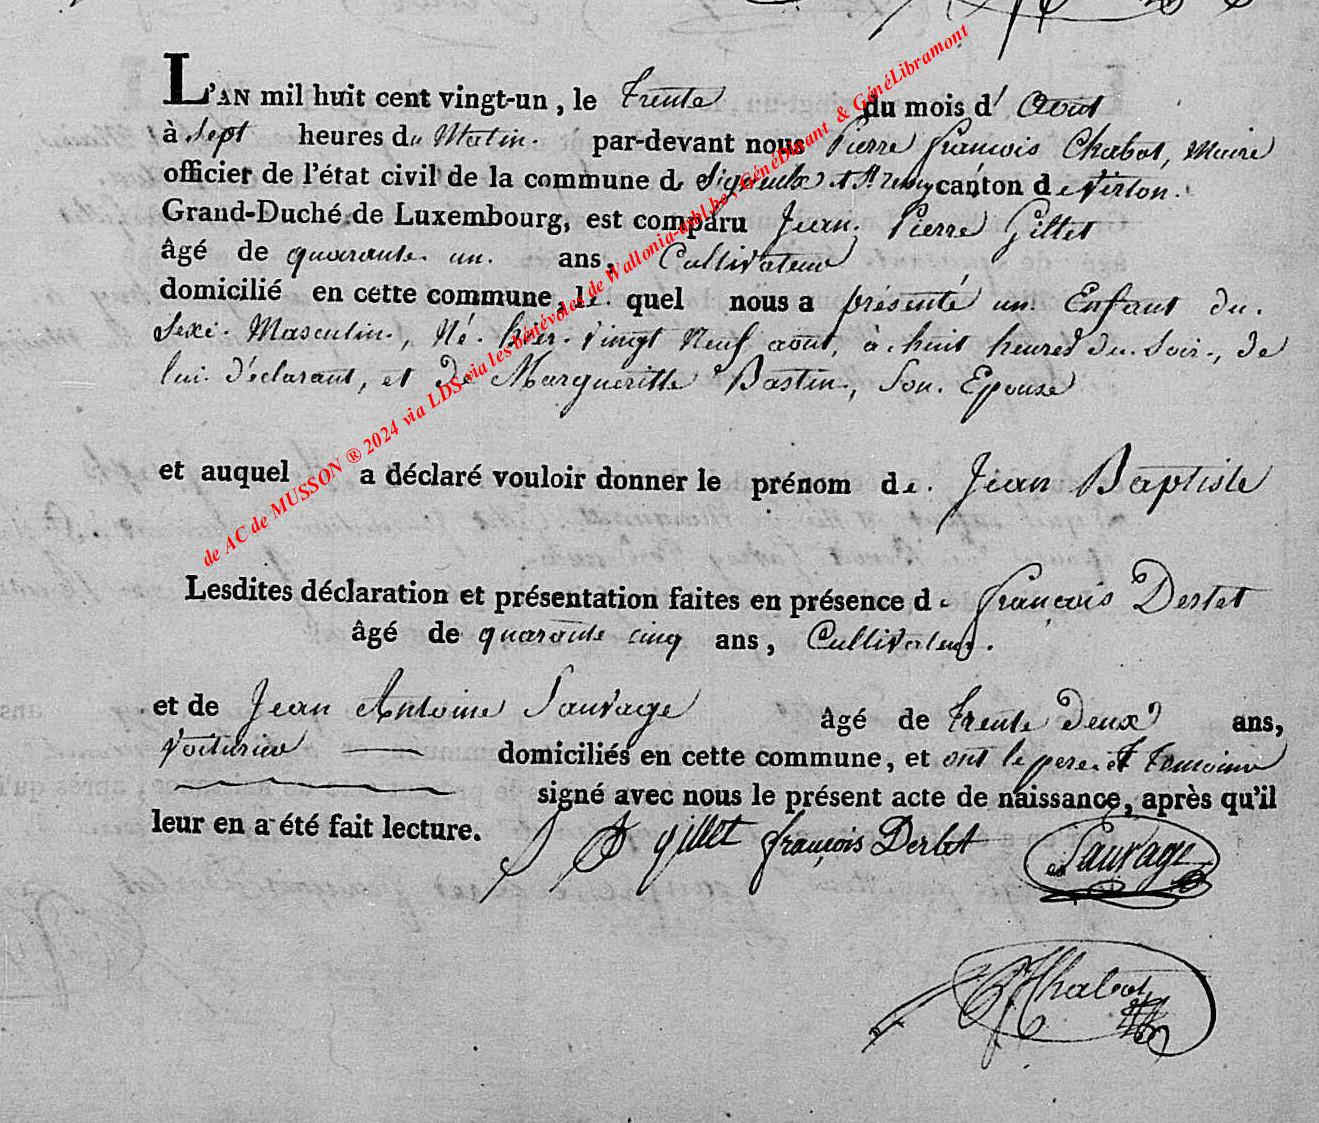 L'AN mil huit cent vingt-un, le trente du mois d' Aout
à sept heures du Matin. par-devant nous Pierre François Chabot, Maire
officier de l'état civil de la commune de Signeulx et St remy canton de Virton.
Grand-Duché de Luxembourg, est comparu Jean Pierre Gillet
âgé de quarante un. ans, Cultivateur
domicilié en cette commune, le quel nous a présenté un Enfant du.
Sexe Masculin, Né hier vingt Neuf aout, à huit heures du Soir, de
lui déclarant, et de Margueritte Bastin, Son Epouse
et auquel a déclaré vouloir donner le prénom de. Jean Baptiste
Lesdites déclaration et présentation faites en présence de François Derlet
âgé de quarante cinq ans, Cultivateur.
et de Jean Antoine Sauvage âgé de trente Deux ans,
Voiturier domiciliés en cette commune, et ont le pere et temoins
signé avec nous le présent acte de naissance, après qu'il
leur en a été fait lecture.
J P gillet françois Derlet Sauvage
Chabot
de AC de MUSSON ® 2024 via LDS via les bénévoles de Wallonia-asbl.be, GénéDinant & GénéLibramont